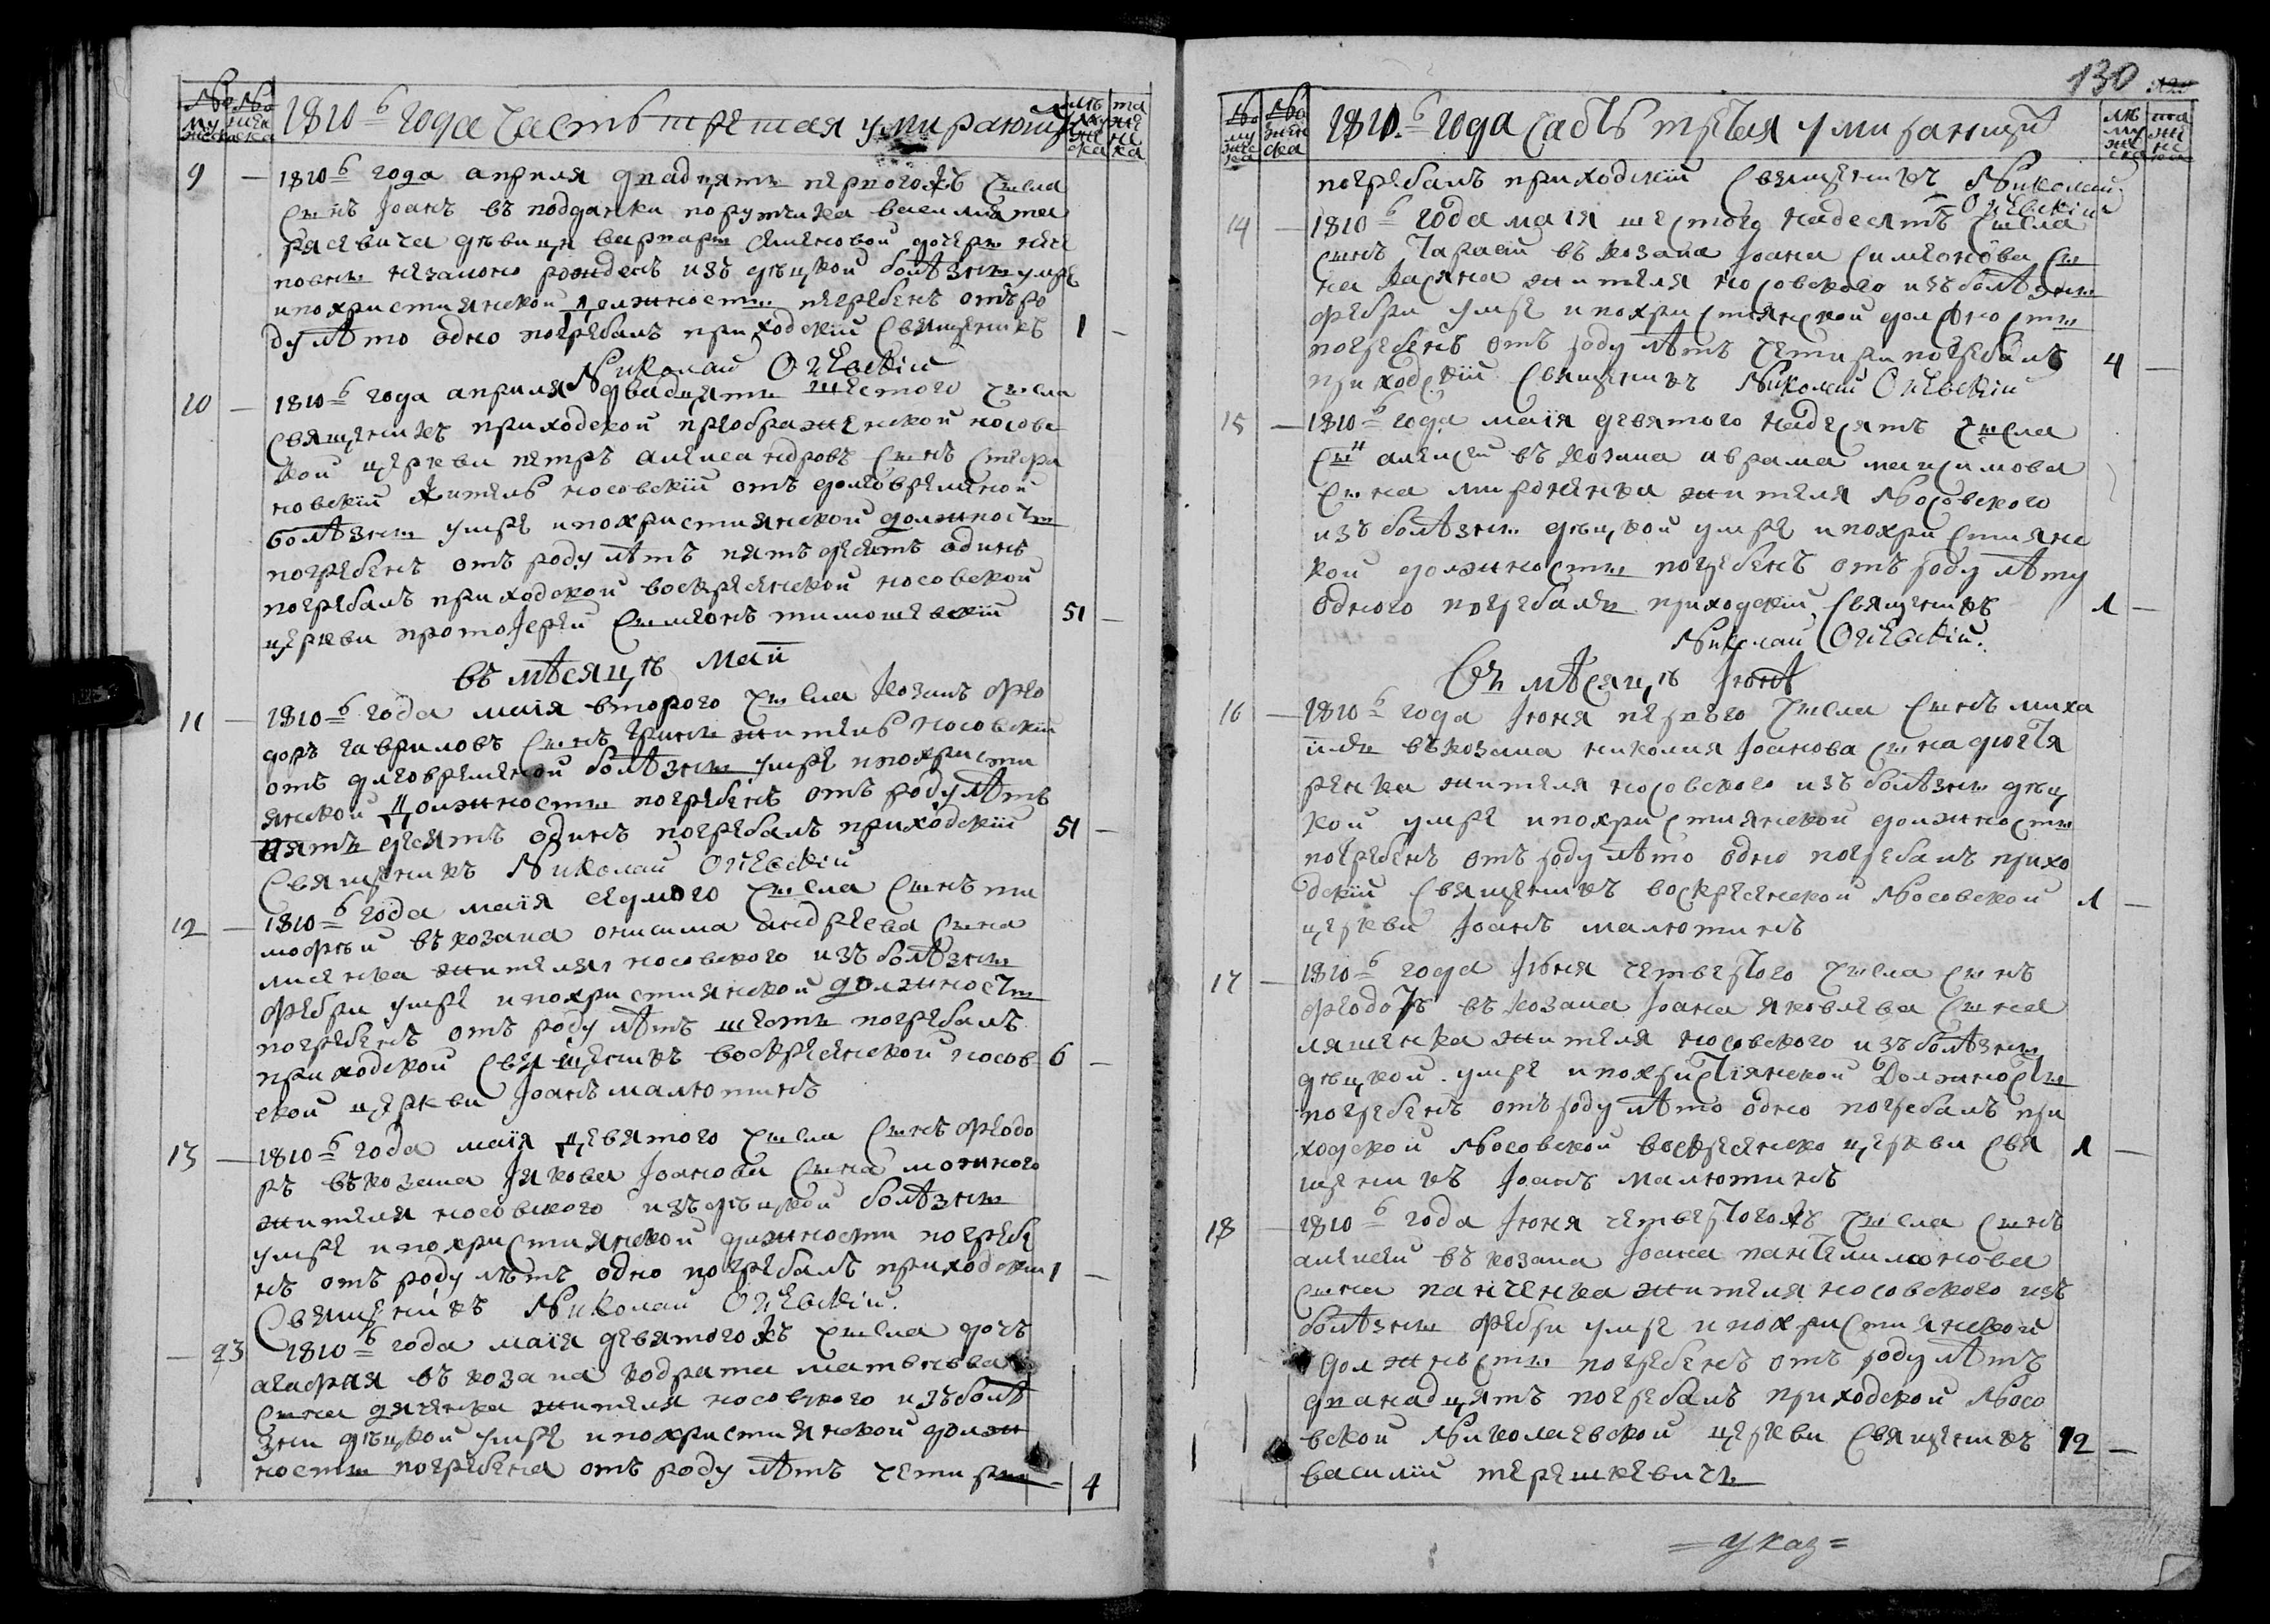 № му жеска
№ жен ска
1810ᵇ года Часть третая умирающи
лѣ му же ска
та же нс ка
9 — 1810ᵇ года апреля двадцять первогожъ числа
сынъ Іоанъ въ подданки порутчика василия та
расевича девици варвари семеновой дочери
незамоно рожденъ изъ дѣцкой болѣзни умре
ипохристиянской должности погребенъ отъ ро
ду лѣто одно погребалъ приходскій Священикъ 1 —
Николай Огіевскій
10 — 1810ᵇ года апреля двадцять шестого числа
Священикъ приходской преображенской носовс
кой церкви петръ александровъ сынъ стефа
новскій житель носовскій отъ долговременой
болѣзни умре ипохристиянской должности
погребенъ отъ роду лѣтъ пятьдесятъ одинъ
погребалъ приходской воскресенской носовской
церкви протоіерей симеонъ тимошевскій 51 —
въ мѣсяцѣ маи
11 — 1810ᵇ года маія второго числа козакъ фео
доръ гавриловъ сынъ житель носовскій
отъ долговременой болѣзни умре ипохристи
янской должности погребенъ отъ роду лѣтъ
пятьдесятъ одинъ погребалъ приходскій 51 —
Священикъ Николай Огіевскій
12 — 1810ᵇ года маія седмого числа сынъ ти
мофей въ козака онисима андреева сына
лисенка жителя носовского изъ болѣзни
фебри умре ипохристиянской должности
погребенъ отъ роду лѣтъ шесть погребалъ
приходской Священикъ воскресенской носов 6 —
ской церкви Іоанъ малютинъ
13 — 1810ᵇ года маія девятого числа сынъ феодо
ръ въ козака Іякова Іоанова сына можного
жителя носовского изъ дѣцкой болѣзни
умре ипохристиянской должности погребе
нъ отъ роду лѣтъ одно погребалъ приходскій 1 —
Священикъ Николай Огіевскій.
— 23 1810ᵇ года маія девятогожъ числа дочь
агафия въ козака кодрата матвеева
сына дяченка жителя носовского изъ болѣ
зни дѣцкой умре ипохристиянской долж
ности погребена отъ роду лѣтъ четири = 4
130
№ му жеска
№ женска
1810.ᵇ года Часть третья умирающи
лѣ му же ска
та же нс ка
погребалъ приходскій Священикъ Николай
Огіевскій
14 — 1810ᵇ года маія шестого надесять числа
сынъ Тарасій въ козака Іоана Симеонова сы
на Касяна жителя носовского изъ болѣзни
фебри умре ипохристиянской должности
погребенъ отъ роду лѣтъ четири погребалъ 4 —
приходскій Священикъ Николай Огіевскій
15 — 1810ᵇ года маія девятого надесять числа
сынъ алексей въ козака аврама максимова
сына мироненка жителя Носовского
изъ болѣзни дѣцкой умре ипохристиянс
кой должности погребенъ отъ роду лѣту
одного погребалъ приходскій Священикъ 1 —
Николай Огіевскій.
Въ мѣсяцѣ Іюнѣ
16 — 1810ᵇ года Іюня первого числа сынъ миха
илъ въ козака николая Іоанова сына дюгтя
ренка жителя носовского изъ болѣзни дѣц
кой умре ипохристиянской должности
погребенъ отъ роду лѣто одно погребалъ прихо
дскій Священикъ воскресенской Носовской 1 —
церкви Іоанъ малютинъ
17 — 1810ᵇ года Іюня четвертого числа сынъ
феодотъ въ козака Іоана яковлева сына
ляшенка жителя носовского изъ болѣзни
дѣцкой умре ипохристіянской Должности
погребенъ отъ роду лѣто одно погребалъ при
ходской Носовской воскресенско церкви Свя 1 —
щеникъ Іоанъ малютинъ
18 — 1810ᵇ года Іюня четвертогожъ числа сынъ
алексей въ козака Іоана пантелимонова
сына панченка жителя носовского изъ
болѣзни фебри умре ипохристиянской
должности погребенъ отъ роду лѣтъ
дванадцять погребалъ приходской Носо
вской Николаевской церкви Священикъ 12 —
василій терешкевичъ
= указ =